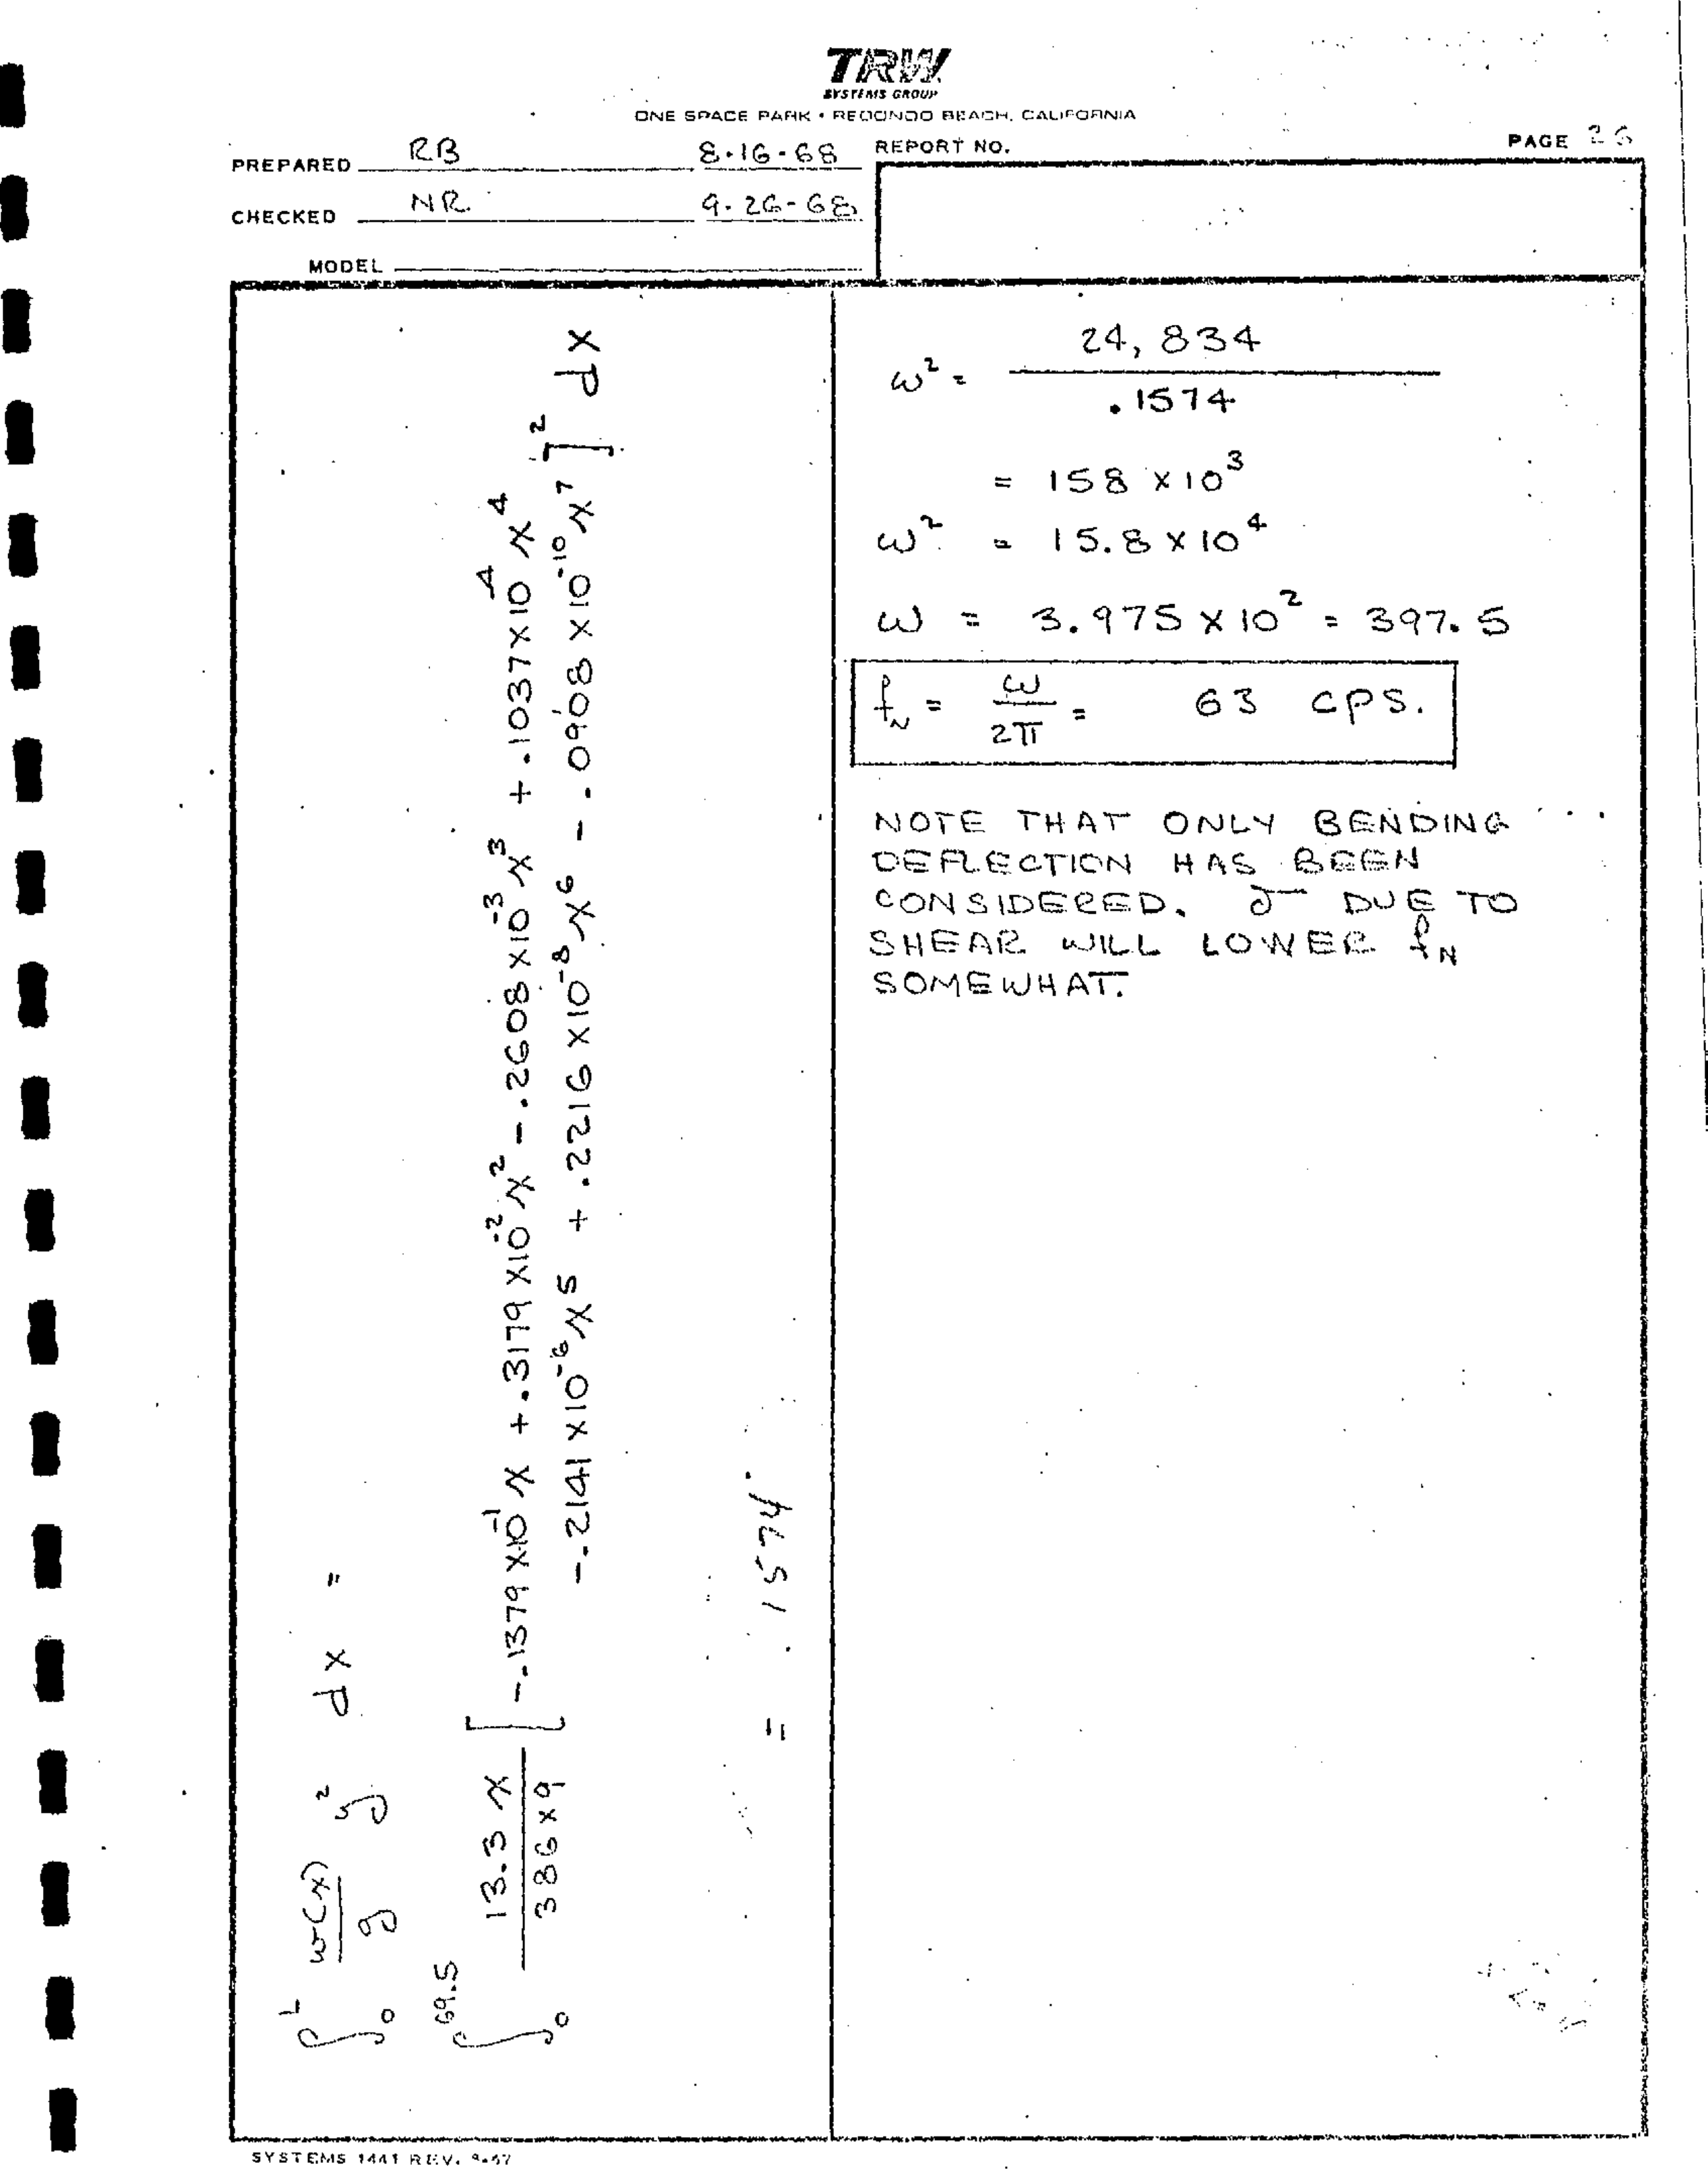 TRW
SYSTEMS GROUP
ONE SPACE PARK • REDONDO BEACH, CALIFORNIA
PREPARED RB 8-16-68
REPORT NO.
PAGE 26
CHECKED NR. 9-26-68
MODEL
∫₀ᴸ w(x)/g y² dx =
∫₀^69.5 13.3 x / 386x9 [ -.1379 x10⁻¹ x + .3179 x10⁻² x² - .2608 x10⁻³ x³ + .1037x10⁻⁴ x⁴
-.2141 x10⁻⁶ x⁵ + .2216 x10⁻⁸ x⁶ - .0908 x10⁻¹⁰ x⁷ ]² dx
= .1574
ω² = 24,834 / .1574
= 158 x10³
ω² = 15.8 x 10⁴
ω = 3.975 x 10² = 397.5
f_N = ω/2π = 63 CPS.
NOTE THAT ONLY BENDING
DEFLECTION HAS BEEN
CONSIDERED. δ DUE TO
SHEAR WILL LOWER f_N
SOMEWHAT.
SYSTEMS 1441 REV. 9-67